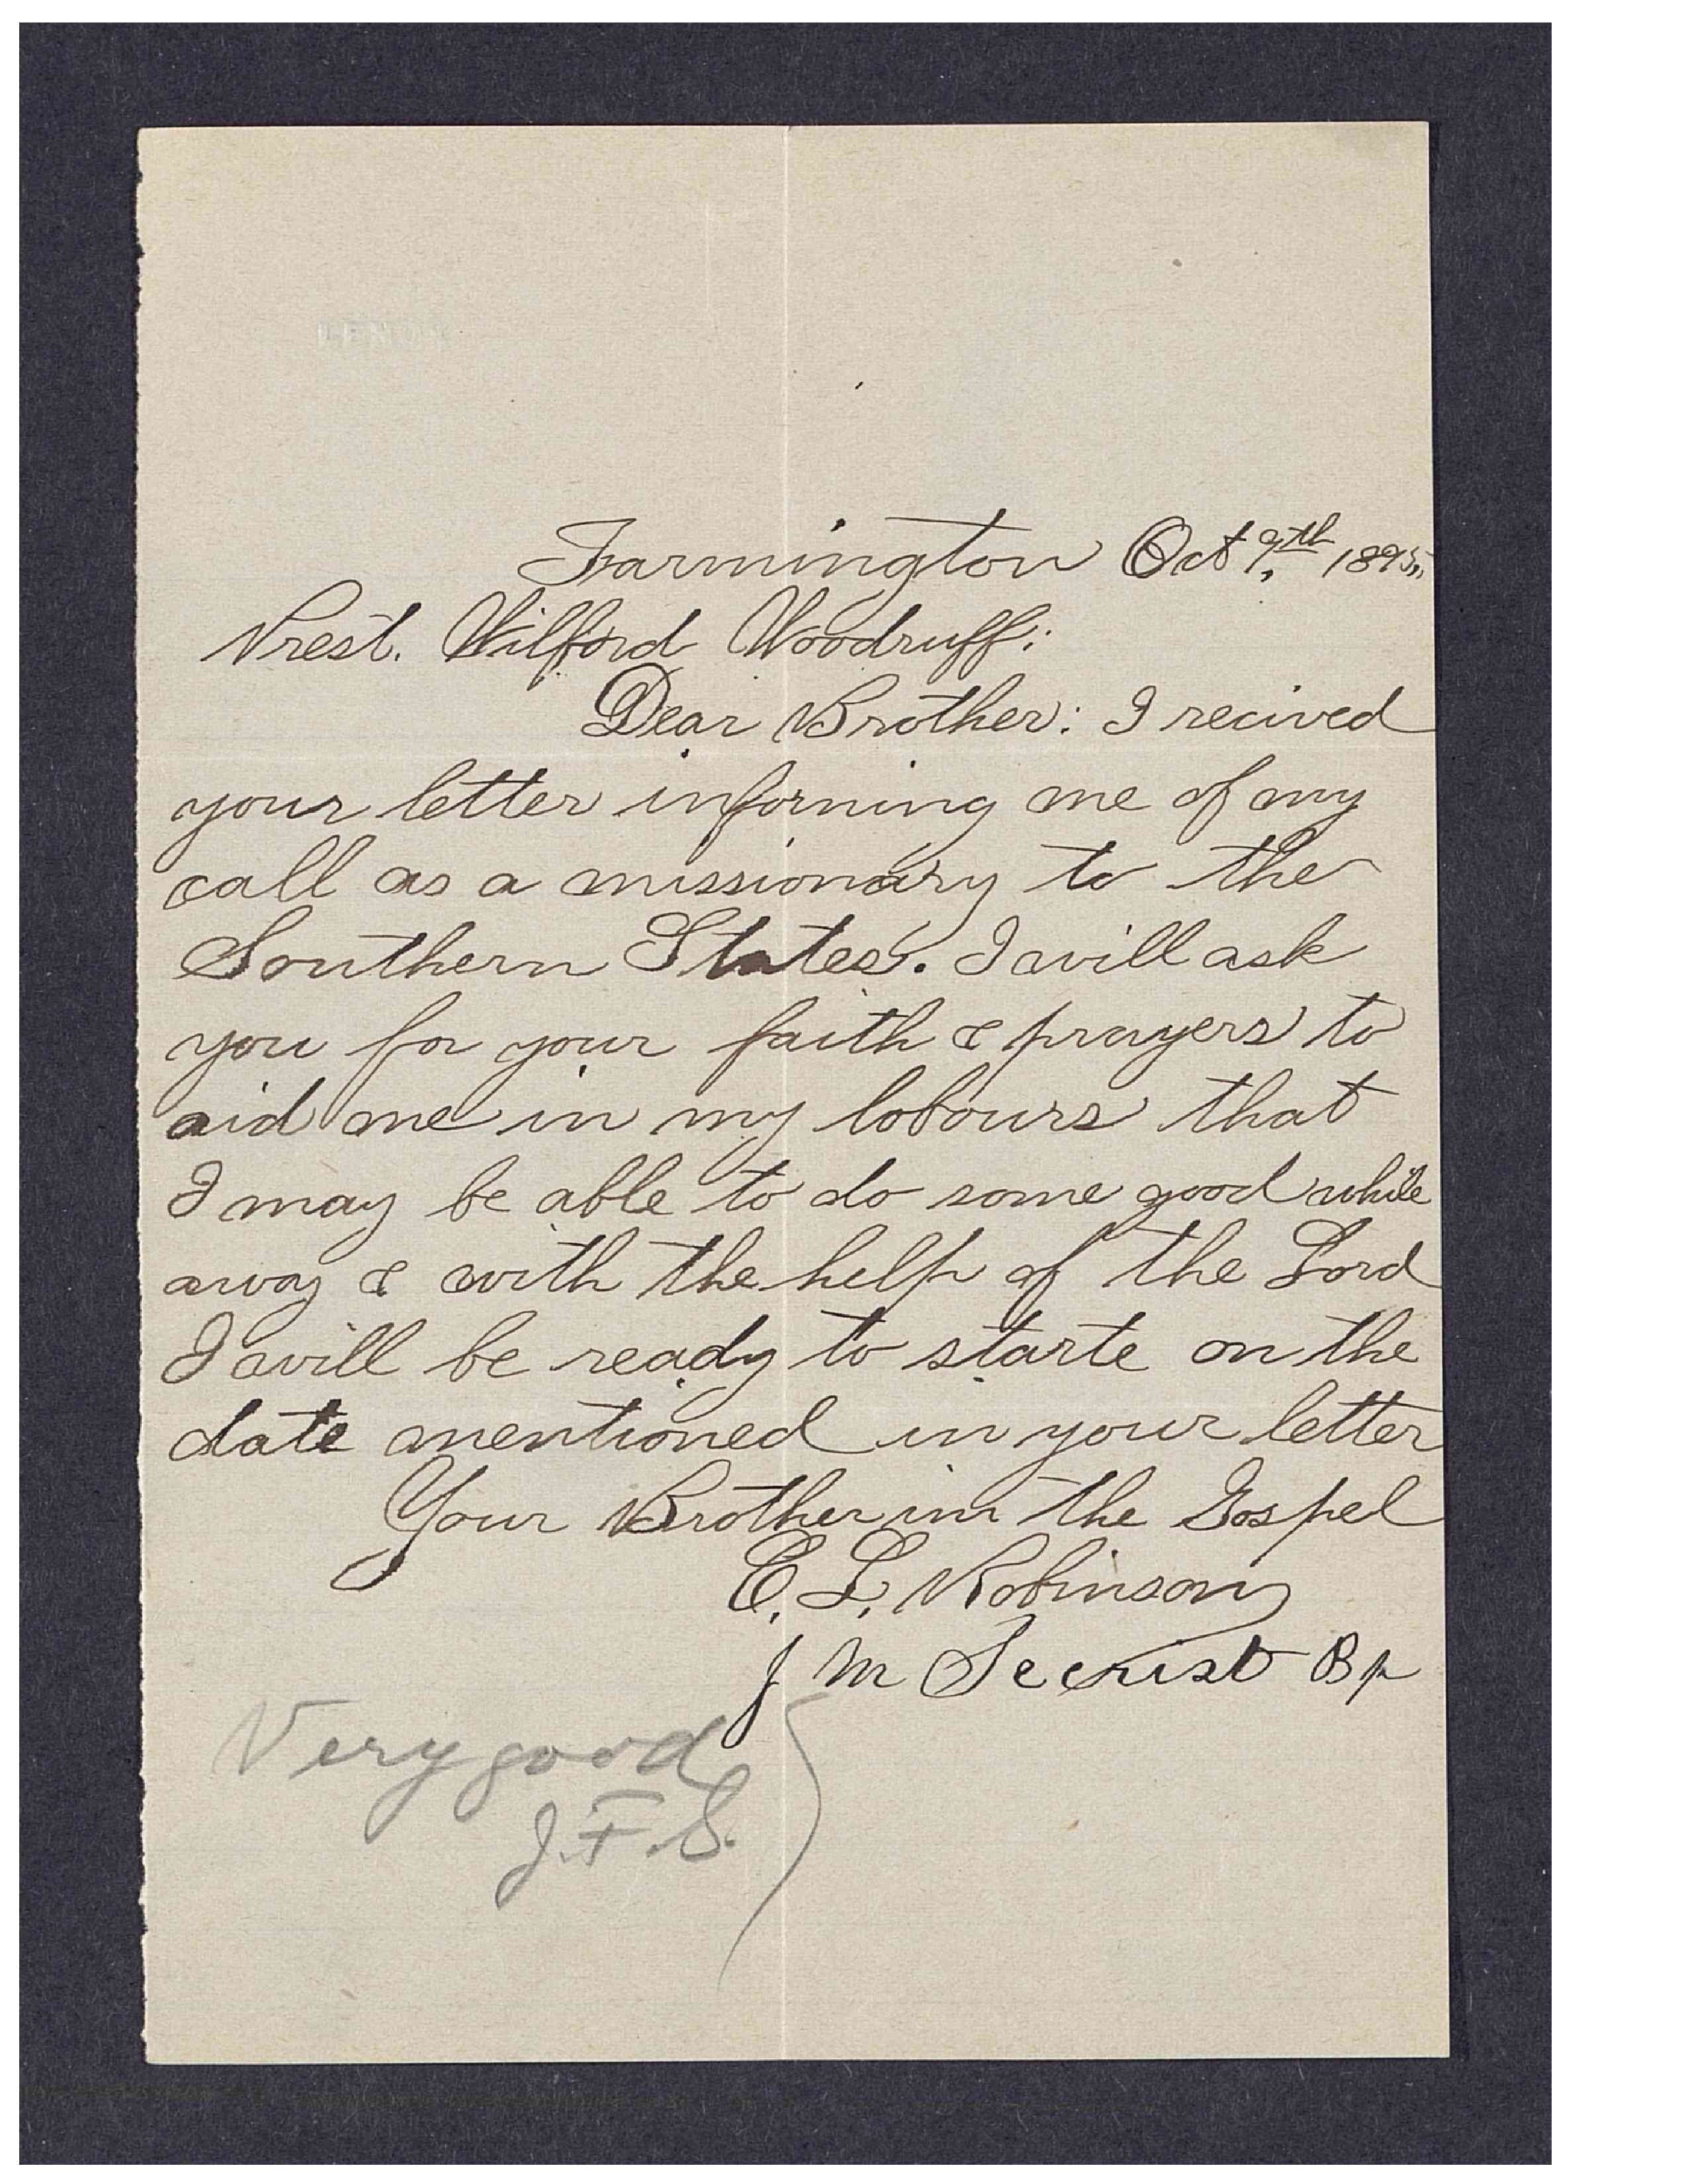 Farmington Oct 9th, 1895,
Prest. Wilford Woodruff:
Dear Brother: I recived
your letter inforning me of my
call as a missionary to the
Southern States. I will ask
you for your faith & prayers to
aid me in my lobours that
I may be able to do some good while
away & with the help of the Lord
I will be ready to starte on the
date mentioned in your letter
Your Brother in the Gospel
E. L. Robinson
J M Secrist Bp
Very good
J.F.S.